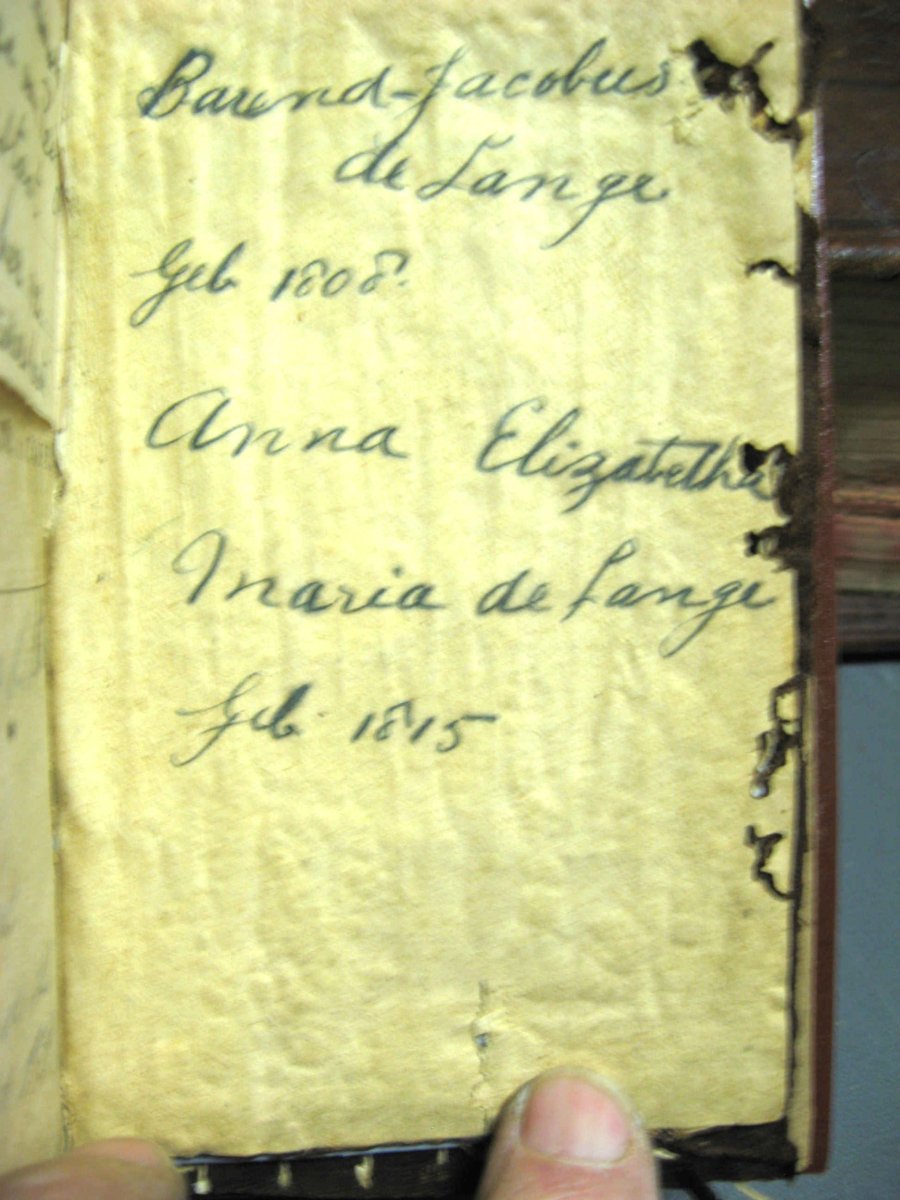 Barend-Jacobus
de Lange
Geb. 1808.
Anna Elizabetha
Maria de Lange
Geb. 1815